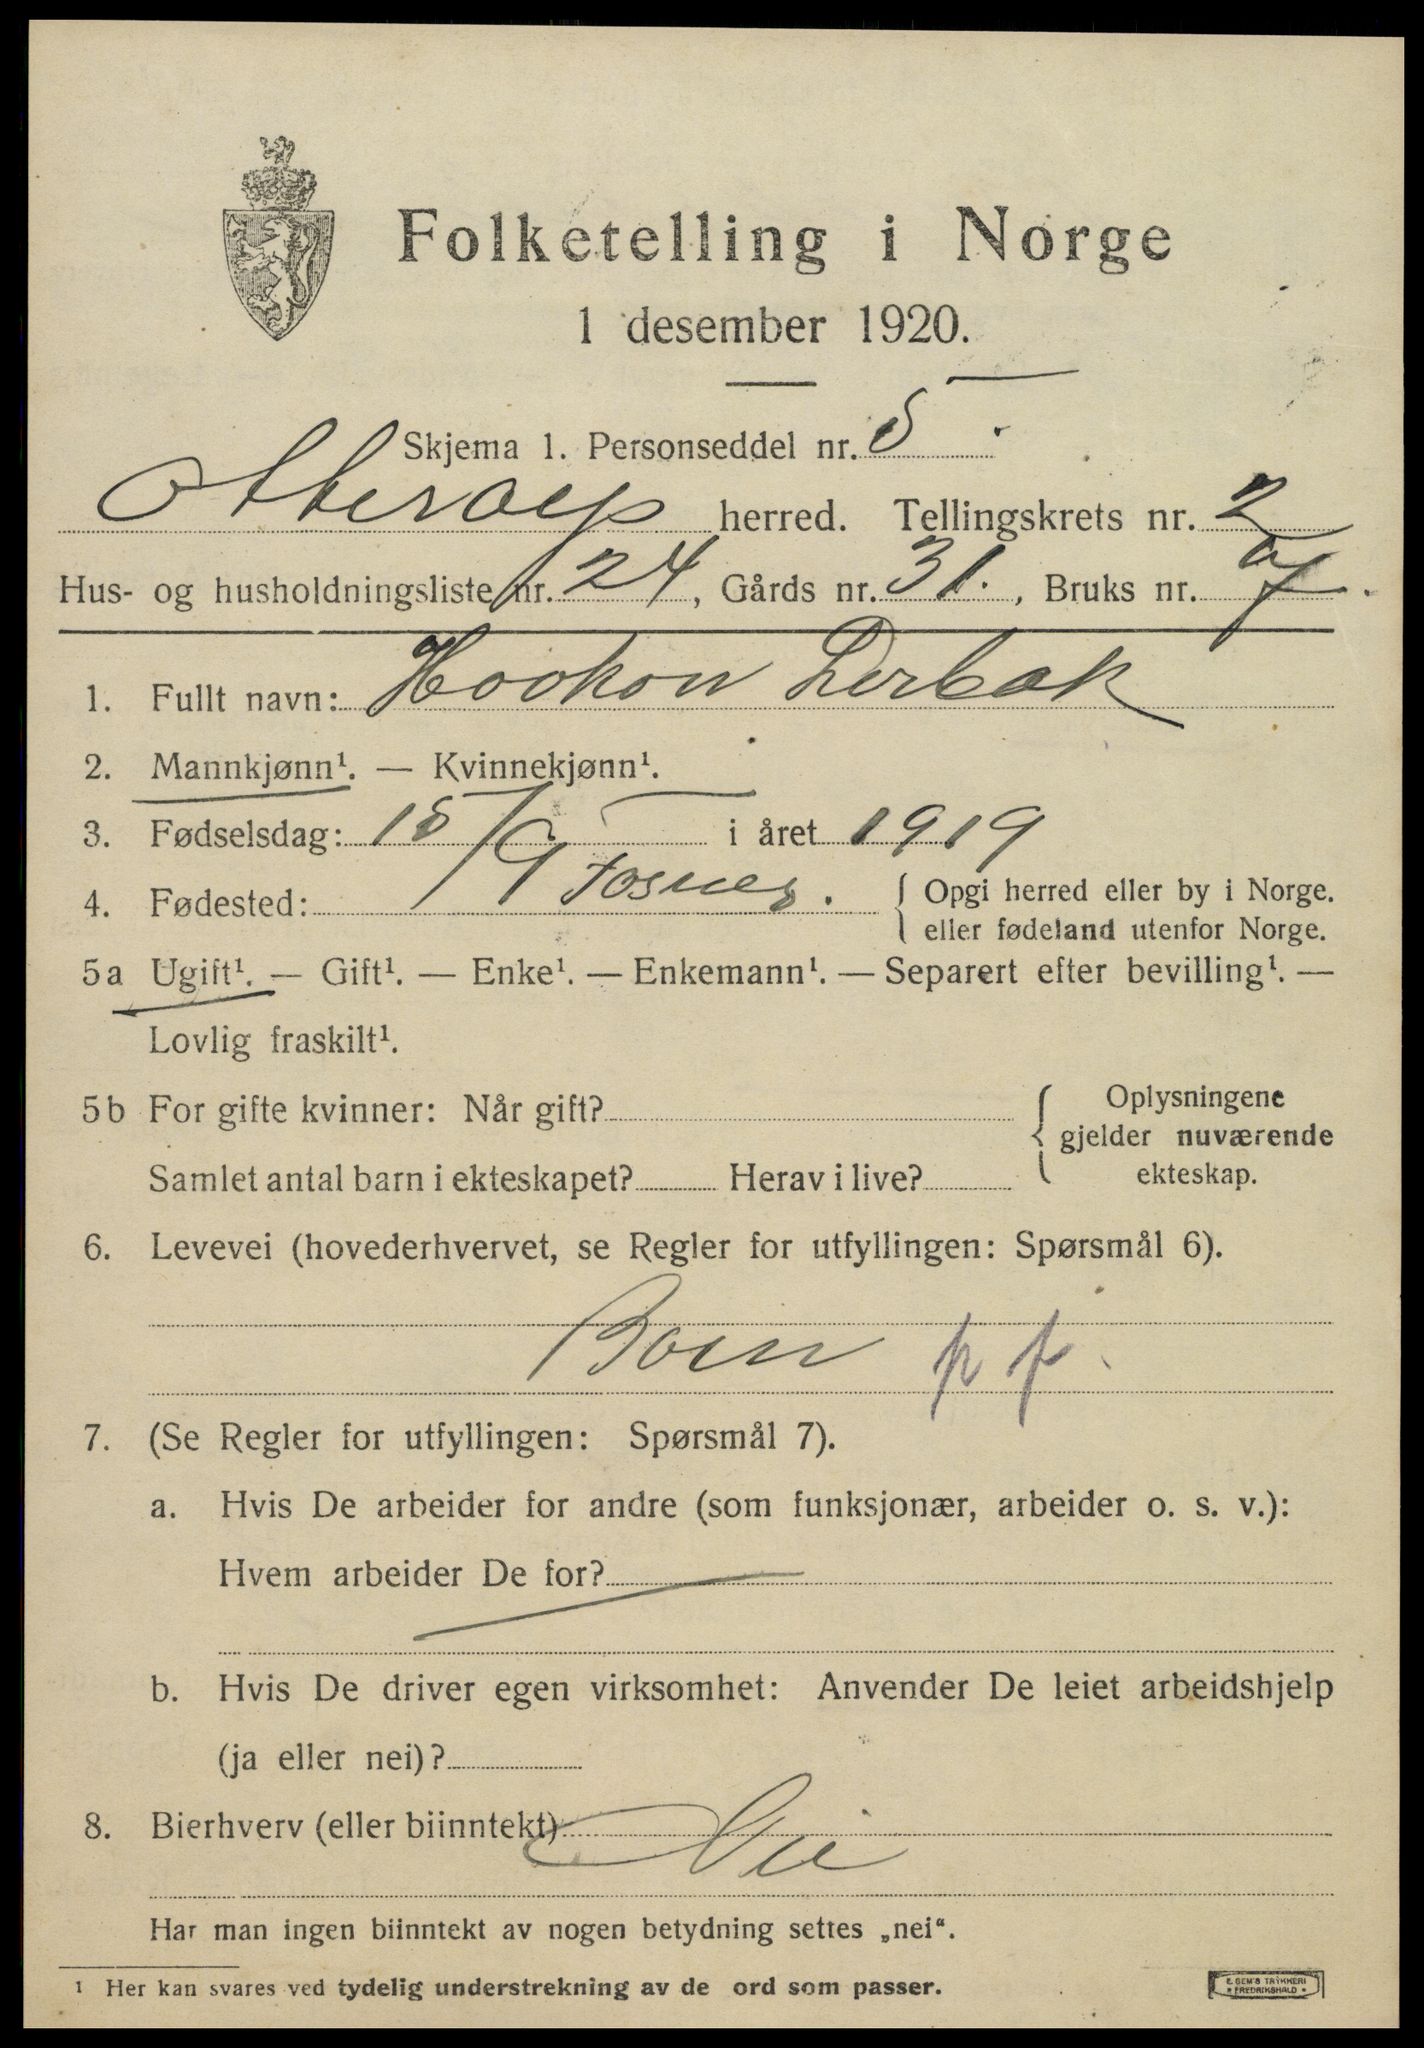 Folketelling i Norge
1 desember 1920.
Skjema 1. Personseddel nr. 5.
Otterøy herred. Tellingskrets nr. 2
Hus- og husholdningsliste nr. 24, Gårds nr. 31., Bruks nr. 7.
1. Fullt navn: Hookon Lerbak
2. Mannkjønn¹. — Kvinnekjønn¹.
3. Fødselsdag: 15/9 i året 1919
4. Fødested: Fosnes. { Opgi herred eller by i Norge.
eller fødeland utenfor Norge.
5a Ugift¹. — Gift¹. — Enke¹. — Enkemann¹. — Separert efter bevilling¹. —
Lovlig fraskilt¹.
5b For gifte kvinner: Når gift? { Oplysningene
gjelder nuværende
Samlet antal barn i ekteskapet? Herav i live? ekteskap.
6. Levevei (hovederhvervet, se Regler for utfyllingen: Spørsmål 6).
Barn p f.
7. (Se Regler for utfyllingen: Spørsmål 7).
a. Hvis De arbeider for andre (som funksjonær, arbeider o. s. v.):
Hvem arbeider De for?
b. Hvis De driver egen virksomhet: Anvender De leiet arbeidshjelp
(ja eller nei)?
8. Bierhverv (eller biinntekt) Nei
Har man ingen biinntekt av nogen betydning settes „nei“.
¹ Her kan svares ved tydelig understrekning av de ord som passer.
E. SEM'S TRYKKERI
• FREDRIKSHALD •